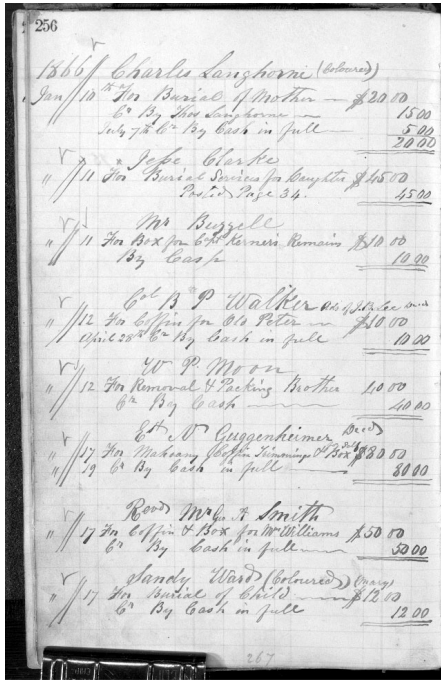 256
1866 Charles Langhorne (Coloured)
Jan 10th For Burial of Mother $20 00
Cr By Thos Langhorne 15 00
July 7th Cr By Cash in full 5 00
20 00
" 11 Jesse Clarke
For Burial Services for Daughter $45 00
Posted Page 34. 45 00
Mr Buzzell
" 11 For Box for Capt Kerner's Remains $10 00
By Cash 10 00
Col B P Walker
" 12 For Coffin for Old Peter $10 00
April 28th Cr By Cash in full 10 00
W P Moon
" 12 For Removal & Packing Brother 40 00
Cr By Cash 40 00
Est N Guggenheimer Decd
" 17 For Mahogany Coffin Trimmings & Box $80 00
" 19 Cr By Cash in full 80 00
Revd Mr Geo A Smith
" 17 For Coffin & Box for Mr Williams $50 00
Cr By Cash in full 50 00
Sandy Ward (Coloured)
" 17 For Burial of Child $12 00
Cr By Cash in full 12 00
267